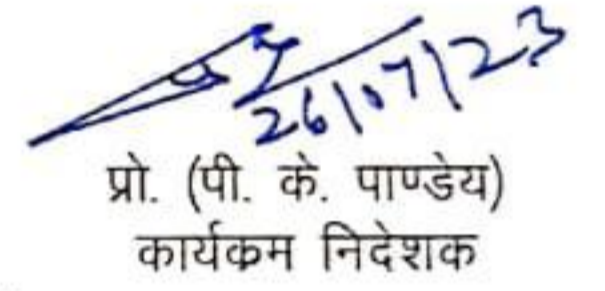 26/07/23
प्रो. (पी. के. पाण्डेय)
कार्यक्रम निदेशक